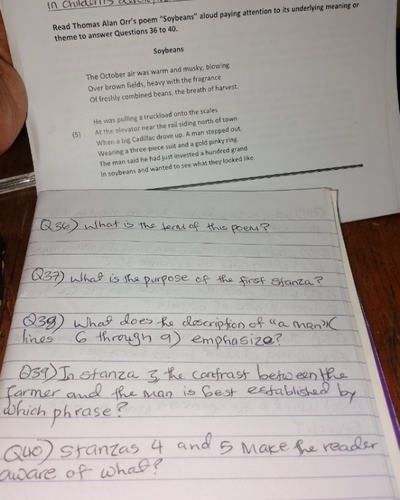 in Children's
Read Thomas Alan Orr's poem "Soybeans" aloud paying attention to its underlying meaning or
theme to answer Questions 36 to 40.
Soybeans
The October air was warm and musky, blowing
Over brown fields, heavy with the fragrance
Of freshly combined beans, the breath of harvest.
He was pulling a truckload onto the scales
(5) At the elevator near the rail siding north of town
When a big Cadillac drove up. A man stepped out,
Wearing a three-piece suit and a gold pinky ring.
The man said he had just invested a hundred grand
In soybeans and wanted to see what they looked like.
Q36) What is the term of this poem?
Q37) What is the purpose of the first stanza?
Q38) What does the description of "a man"(
lines 6 through 9) emphasize?
Q39) In stanza 3, the contrast between the
farmer and the man is best established by
which phrase?
Q40) Stanzas 4 and 5 make the reader
aware of what?